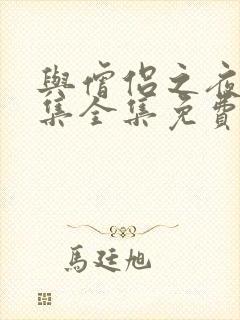 與僧侶之夜
集全集免費
馬廷旭